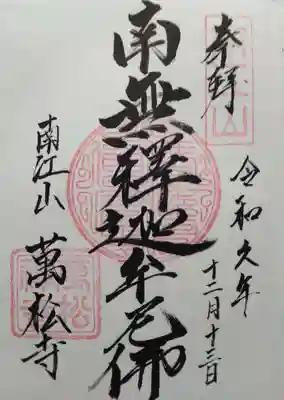 奉拝
令和六年
十二月十三日
南無釋迦牟尼佛
南江山
萬松寺